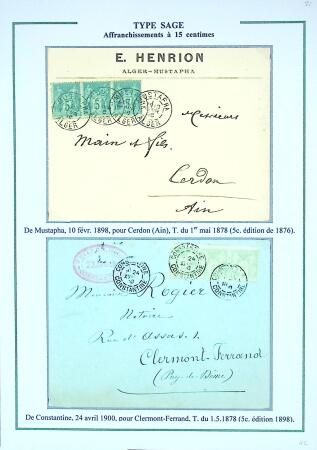 TYPE SAGE
Affranchissements à 15 centimes
E. HENRION
ALGER-MUSTAPHA
MUSTAPHA
ALGER
Messieurs
Main et fils
Cerdon
Ain
De Mustapha, 10 févr. 1898, pour Cerdon (Ain), T. du 1er mai 1878 (5c. édition de 1876).
CONSTANTINE
CONSTANTINE
Monsieur Rogier
Notaire
Rue d'Assas. 1.
Clermont-Ferrand
(Puy-de-Dôme)
De Constantine, 24 avril 1900, pour Clermont-Ferrand, T. du 1.5.1878 (5c. édition 1898).